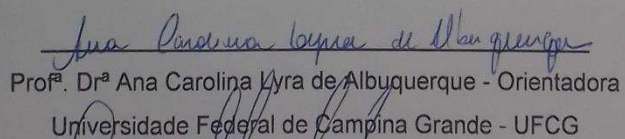 Ana Carolina Lyra de Albuquerque
Profª. Drª Ana Carolina Lyra de Albuquerque - Orientadora
Universidade Federal de Campina Grande - UFCG